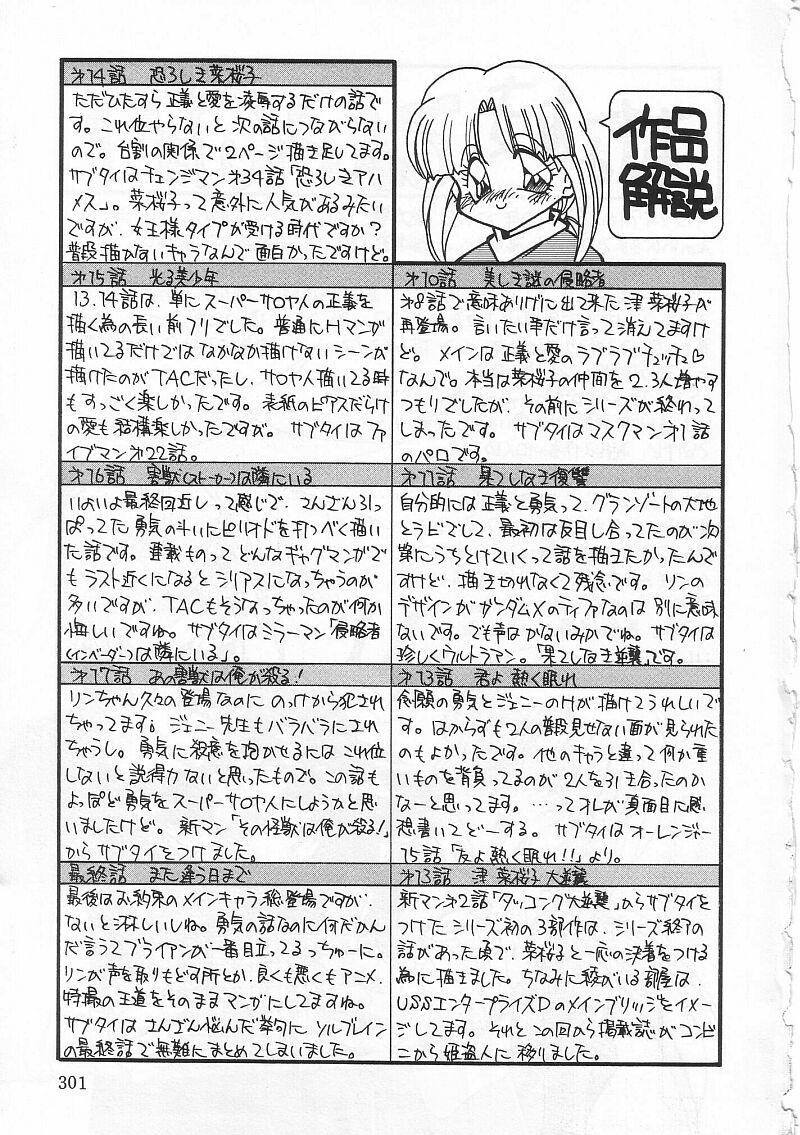 作品
解説
第10話 美しき謎の侵略者
第8話で意味ありげに出て来た津 菜桜子が
再登場。言いたい事だけ言って消えてますけ
ど。メインは正義と愛のラブラブチュッチュ♡
なんで。本当は菜桜子の仲間を2.3人増やす
つもりでしたが、その前にシリーズが終わって
しまったです。 サブタイはマスクマン第1話
のパロです。
第11話 果てしなき復讐
自分的には正義と勇気って、グランゾートの大地
とラビでして、最初は反目し合ってたのが次
第にうちとけていくって話を描きたかったんで
すけど、描き切れなくて残念です。リンの
デザインがガンダムXのティファなのは別に意味
ないです。でも声はかないみかでね。サブタイは
珍しくウルトラマン。「果てしなき逆襲」です。
第13話 君よ熱く眠れ
念願の勇気とジェニーのHが描けてうれしいで
す。はからずも2人の普段見せない面が見られた
のもよかったです。他のキャラと違って何か重
いものを背負ってるのが2人を引き合ったのか
なーと思ってます。…ってオレが真面目に感
想書いてどーする。サブタイはオーレンジャー
15話「友よ熱く眠れ!!」より。
第13話 津 菜桜子 大逆襲
新マン第2話「タッコング大逆襲」からサブタイを
つけたシリーズ初の3部作は、シリーズ終了の
話があった頃で、菜桜子と一応の決着をつける
為に描きました。ちなみに彼がいる部屋は、
USSエンタープライズDのメインブリッジをイメー
ジしてます。それとこの回から掲載誌がコンビ
ニから姫盗人に移りました。
第14話 恐ろしき菜桜子
ただひたすら正義と愛を凌辱するだけの話で
す。これ位やらないと次の話につながらない
ので。台割の関係で2ページ描き足してます。
サブタイはチェンジマン第34話「恐ろしきアハ
メス」。菜桜子って意外に人気があるみたい
ですが、女王様タイプが受ける時代ですか?
普段描かないキャラなんで面白かったですけど。
第15話 光る美少年
13.14話は、単にスーパーサロヤ人の正義を
描く為の長い前フリでした。普通にHマンが
描いてるだけではなかなか描けないシーンが
描けたのがTACだったし、サロヤ人描いてる時
もすっごく楽しかったです。表紙のピアスだらけ
の愛も結構楽しかったですが。サブタイはファ
イブマン第22話。
第16話 害獣(ストーカー)は隣にいる
いよいよ最終回近しって感じで、さんざん引っ
ぱってた勇気の斗いにピリオドを打つべく描い
た話です。連載ものってどんなギャグマンガで
もラスト近くになるとシリアスになっちゃうのが
多いですが、TACもそうなっちゃったのが何か
悔しいですね。サブタイはミラーマン「侵略者
(インベーダー)は隣にいる」。
第17話 あの害獣は俺が殺る!
リンちゃん久々の登場なのにのっけから犯され
ちゃってます。ジェニー先生もバラバラにされ
ちゃうし。勇気に殺意を抱かせるにはこれ位
しないと説得力ないと思ったもので。この話も
よっぽど勇気をスーパーサロヤ人にしようかと思
いましたけど。新マン「その怪獣は俺が殺る!」
からサブタイをつけました。
最終話 また逢う日まで
最後はお約束のメインキャラ総登場ですが、
ないと淋しいしね。勇気の話なのに何だかん
だ言うてブライアンが一番目立ってるっちゅーに。
リンが声を取りもどす所とか、良くも悪くもアニメ、
特撮の王道をそのままマンガにしてますね。
サブタイはさんざん悩んだ挙句にソルブレイン
の最終話で無難にまとめてしまいました。
301